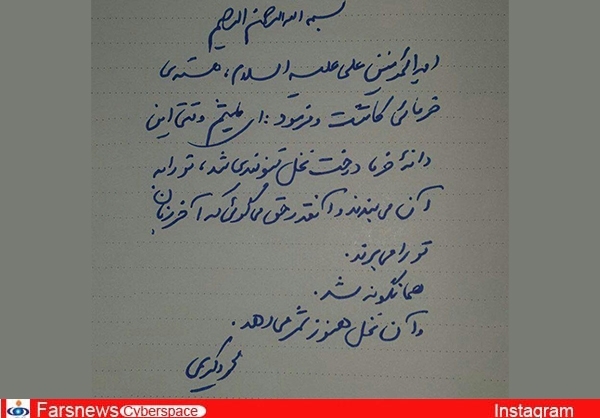 بسم الله الرحمن الرحیم
امیرالمؤمنین علی علیه السلام، هسته‌ی
خرمائی کاشت و فرمود: ای میثم وقتی این
دانهٔ خرما درخت نخل تنومندی شد، تو را به
آن می‌بندند و آنقدر حق می‌گوئی که آخر زبان
تو را می‌برند.
همانگونه شد.
و آن نخل هنوز ثمر می‌دهد.
محمود کریمی
Farsnews Cyberspace Instagram